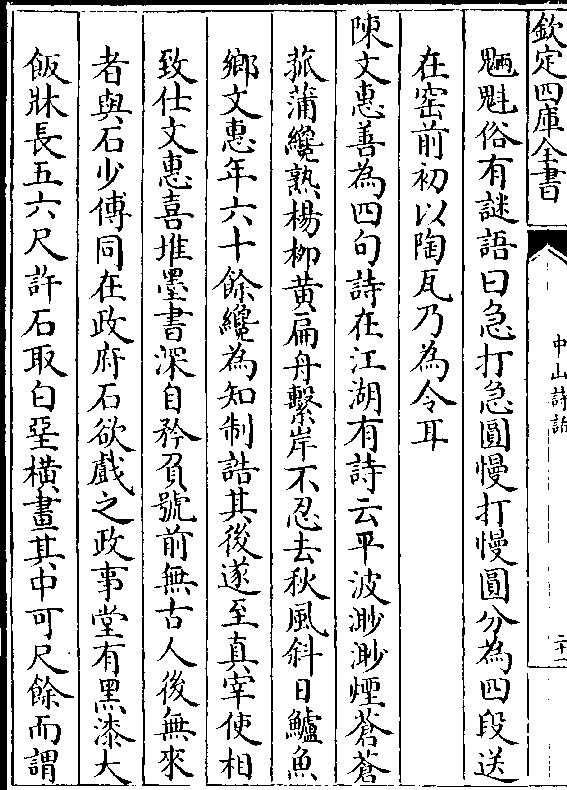 欽定四庫全書
中山詩話
二十一
魎魁俗有謎語曰急打急圓慢打慢圓分為四段送
在窑前初以陶瓦乃為令耳
陳文惠善為四句詩在江湖有詩云平波渺渺煙蒼蒼
菰蒲纔熟楊柳黄扁舟繫岸不忍去秋風斜日鱸魚
鄉文惠年六十餘纔為知制誥其後遂至真宰使相
致仕文惠喜堆墨書深自矜負號前無古人後無來
者與石少傅同在政府石欲戲之政事堂有黑漆大
飯牀長五六尺許石取白堊横畫其中可尺餘而謂